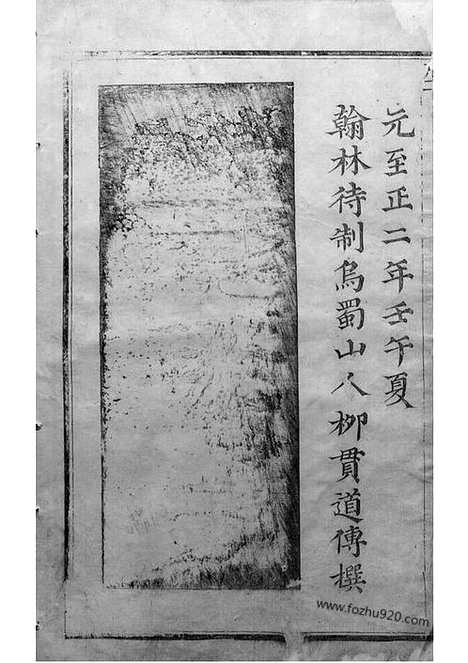 元至正二年壬午夏
翰林待制烏蜀山人柳貫道傳撰
www.fozhu920.com